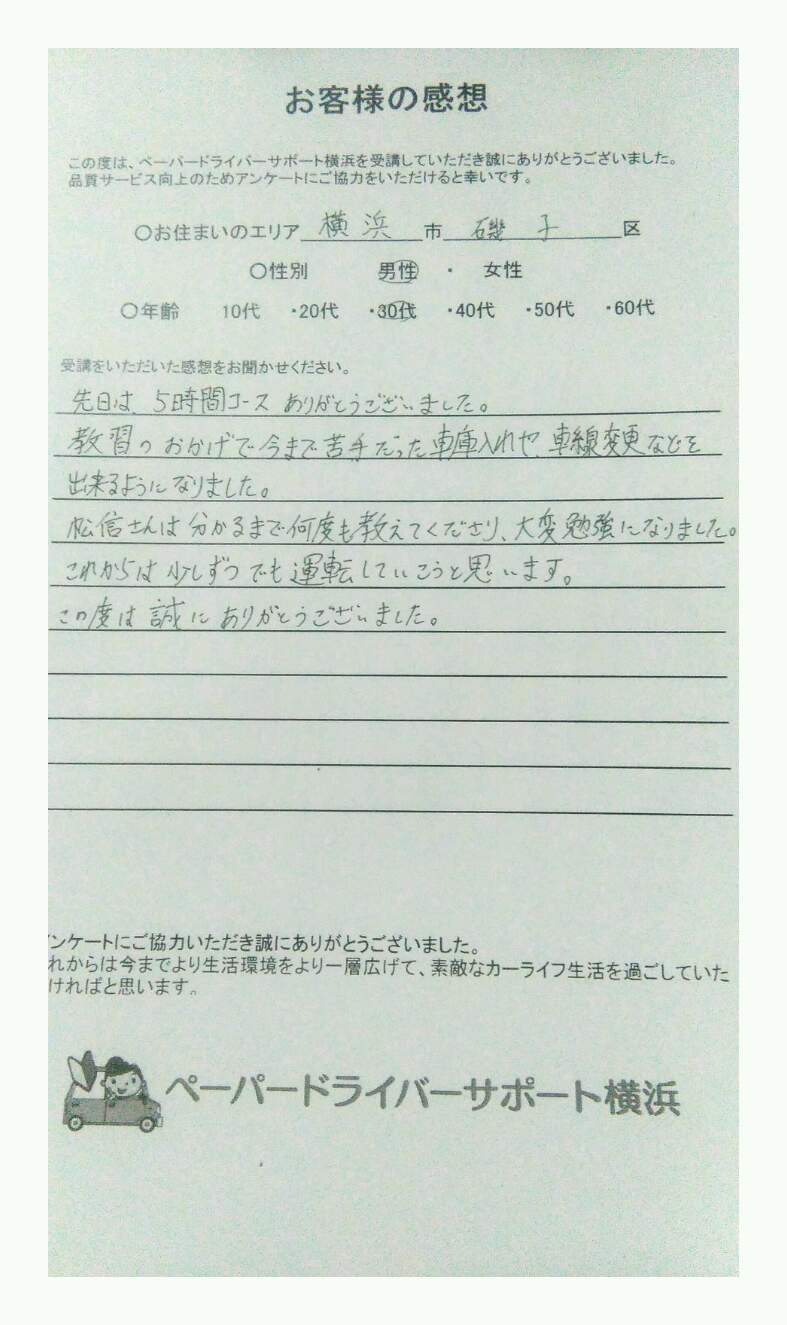 お客様の感想
この度は、ペーパードライバーサポート横浜を受講していただき誠にありがとうございました。
品質サービス向上のためアンケートにご協力をいただけると幸いです。
〇お住まいのエリア 横浜 市 磯子 区
〇性別 男性 ・ 女性
〇年齢 10代 ・20代 ・30代 ・40代 ・50代 ・60代
受講をいただいた感想をお聞かせください。
先日は、5時間コース ありがとうございました。
教習のおかげで今まで苦手だった車庫入れや、車線変更などを
出来るようになりました。
松信さんは分かるまで何度も教えてくださり、大変勉強になりました。
これからは少しずつでも運転していこうと思います。
この度は誠にありがとうございました。
ンケートにご協力いただき誠にありがとうございました。
れからは今までより生活環境をより一層広げて、素敵なカーライフ生活を過ごしていた
ければと思います。
ペーパードライバーサポート横浜